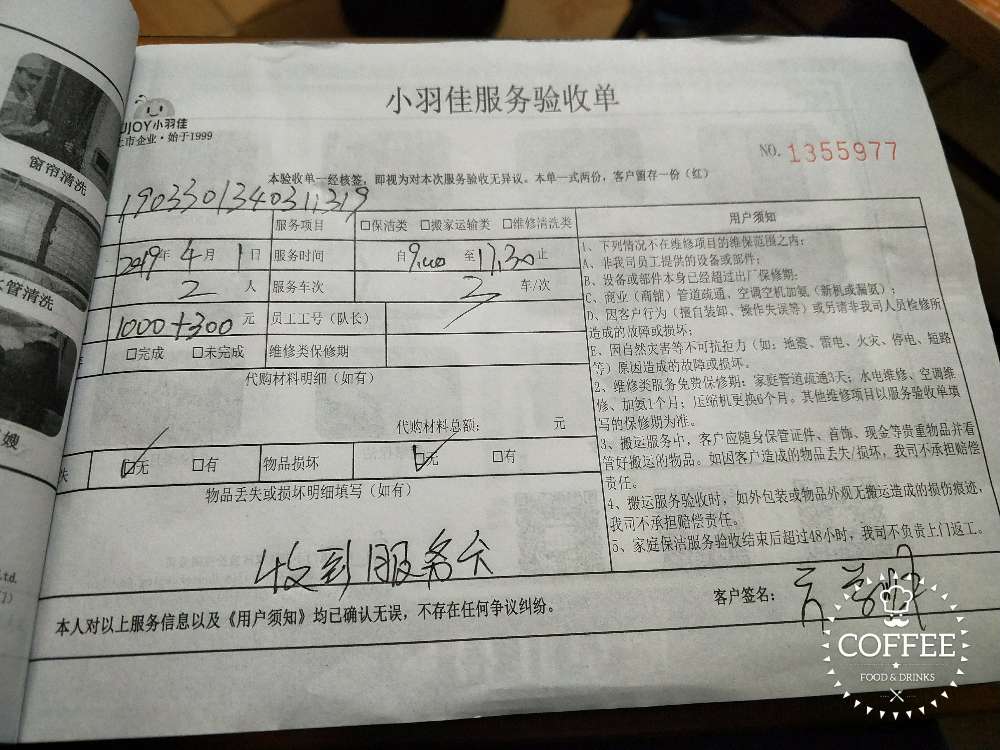 小羽佳服务验收单
UJOY小羽佳
上市企业·始于1999
NO. 1355977
本验收单一经核签，即视为对本次服务验收无异议。本单一式两份，客户留存一份（红）
窗帘清洗
管清洗
嫂
Ltd.
190330134031319
服务项目 □保洁类 □搬家运输类 □维修清洗类
2019年 4月 1日 服务时间 自9:00 至17:30止
2 人 服务车次 2 车/次
1000+300 元 员工工号（队长）
□完成 □未完成 维修类保修期
代购材料明细（如有）
代购材料总额： 元
失 ☑无 □有 物品损坏 ☑无 □有
物品丢失或损坏明细填写（如有）
收到服务卡
用户须知
1、下列情况不在维修项目的维保范围之内：
A、非我司员工提供的设备或部件；
B、设备或部件本身已经超过出厂保修期；
C、商业（商铺）管道疏通、空调空机加氨（新机或漏氨）；
D、因客户行为（擅自装卸、操作失误等）或另请非我司人员检修所
造成的故障或损坏；
E、因自然灾害等不可抗拒力（如：地震、雷电、火灾、停电、短路
等）原因造成的故障或损坏。
2、维修类服务免费保修期：家庭管道疏通3天；水电维修、空调维
修、加氨1个月；压缩机更换6个月。其他维修项目以服务验收单填
写的保修期为准。
3、搬运服务中，客户应随身保管证件、首饰、现金等贵重物品并看
管好搬运的物品。如因客户造成的物品丢失/损坏，我司不承担赔偿
责任。
4、搬运服务验收时，如外包装或物品外观无搬运造成的损伤痕迹，
我司不承担赔偿责任。
5、家庭保洁服务验收结束后超过48小时，我司不负责上门返工。
本人对以上服务信息以及《用户须知》均已确认无误，不存在任何争议纠纷。
客户签名：
COFFEE
FOOD & DRINKS